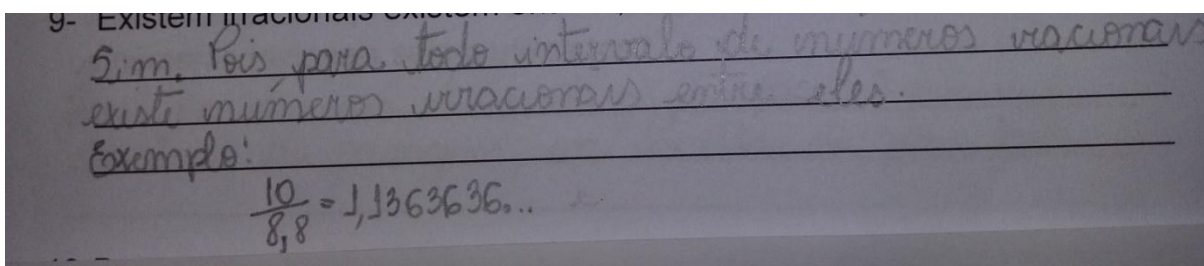 9- Existem irracionais
Sim. Pois, para todo intervalo de números racionais
existe números irracionais entre eles.
Exemplo:
10/8,8 = 1,1363636...